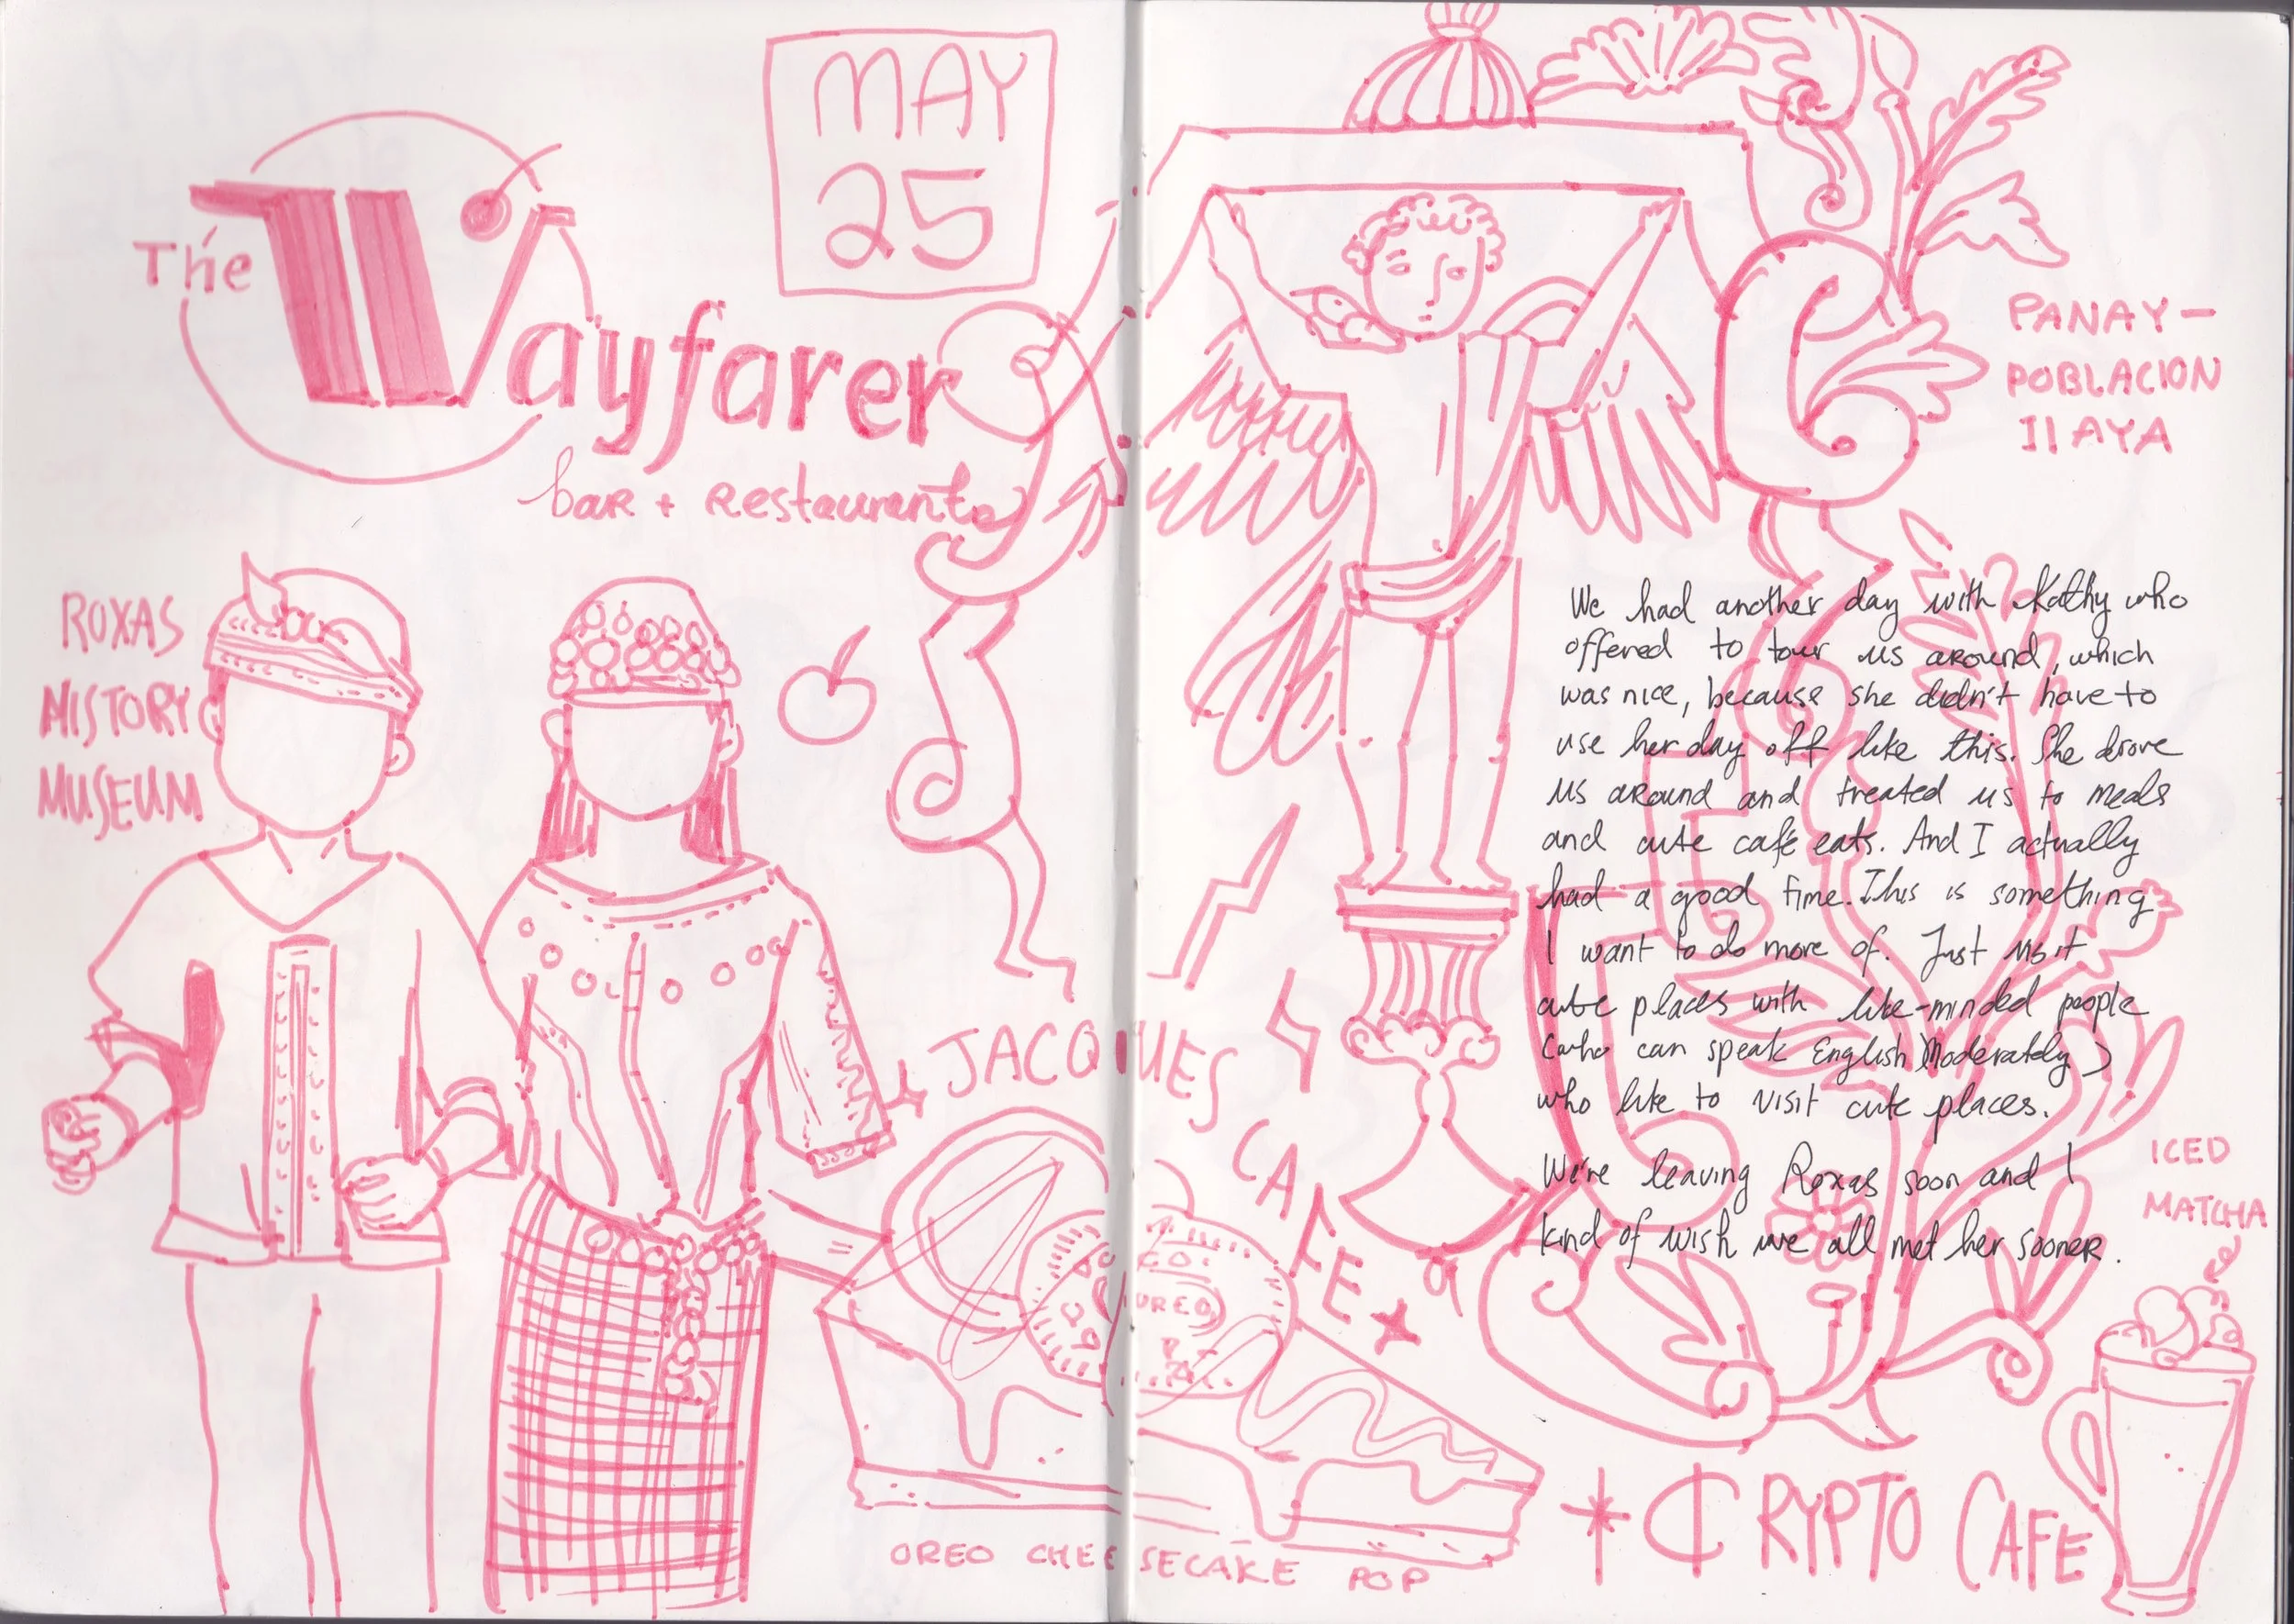 MAY
25
The Wayfarer
bar + restaurant
ROXAS
HISTORY
MUSEUM
PANAY-
POBLACION
ILAYA
We had another day with Kathy who
offered to tour us around, which
was nice, because she didn't have to
use her day off like this. She drove
us around and treated us to meals
and cute café eats. And I actually
had a good time. This is something
I want to do more of. Just visit
cute places with like-minded people
(who can speak English Moderately)
who like to visit cute places.
We're leaving Roxas soon and I
kind of wish we all met her sooner.
JACQUES CAFE
CO.
OREO
OREO CHEESECAKE POP
ICED
MATCHA
CRYPTO CAFE